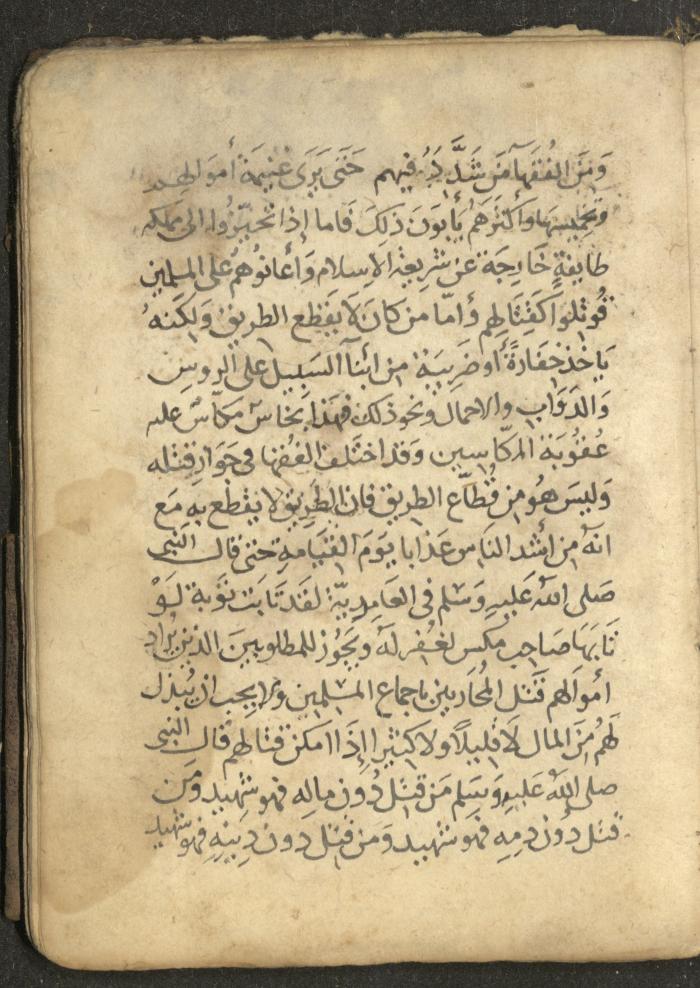 وَمِنَ الفُقَهَآءِ مَن شَدَّدَ فيهم حَتى يَرَى غنيمَة أموَالهم
وتخميسهَا وَأكثرَهُم يَأبَونَ ذلِكَ فَاما إذا تحيّزُوا الى مملكه
طايفةٍ خَارِجَة عَن شَريعَة الاِسلام وَأعَانُوهُم عَلى المسلمين
قُوتلوا كَقِتَالِهم وَأمّا من كانَ لَا يَقطَع الطريقَ وَلكنهُ
يَاخذ خفَارَةً أو ضَريبَة من ابنآ السَبيل على الروس
وَالدوَاب والاحمال ونحو ذلك فهَذا مكّاسٌ عليه
عُقوُبَة المكّاسين وَقد اختَلف الفُقهَا فى جَوَاز قتله
وَليسَ هُو من قُطاّع الطريق فان الطَريق لا ينقطع به مَع
انهُ من أشد الناس عَذابا يَومَ القيَامةِ حتى قال النَبى
صَلى اللهُ عَليهِ وَسَلم فى الغَامِديّة لقَد تَابَت تَوبَة لَوْ
تَابَهَا صَاحِب مَكس لغُفِر لَهُ وَيَجُوز للمطلوبينَ الذين يُراد
أموَالهم قَتل المُحَاربين باجماع المسلمين ولا يجب ان يُبذل
لَهُم مِنَ المال لَا قَليلاً ولا كَثيرا إذَا امكن قتَالهم قال النَبى
صلى اللهُ عَليهِ وَسَلم مَن قتل دُون ماله فهو شهيد وَمَن
قتل دُون دمه فهو شهيد وَمَن قتل دون دِينهِ فهو شهيد